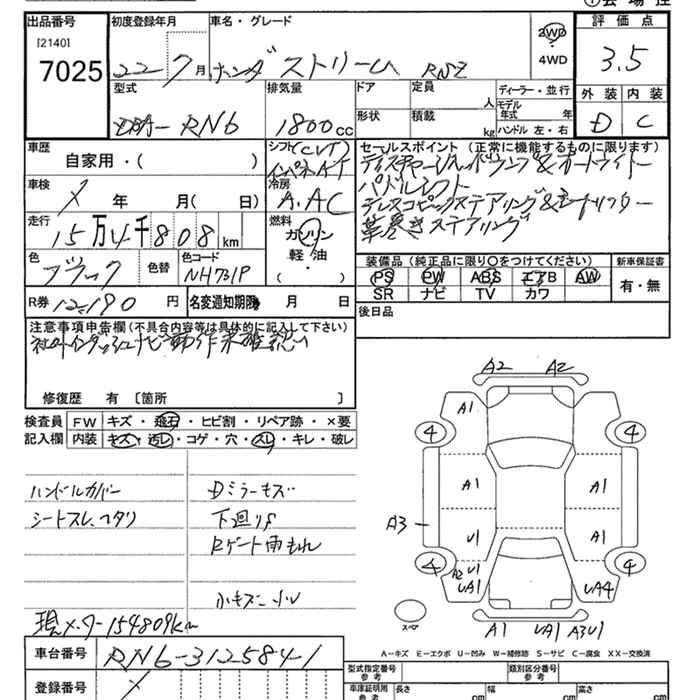 ① 会 場 控
出品番号 初度登録年月 車名・グレード 評 価 点
[2140]
7025 22 7月 ホンダ ストリーム RSZ 2WD 4WD 3.5
型式 排気量 ドア 定員 人 ディーラー・並行 外 装 内 装
DBA-RN6 1800cc 形状 積載 kg モデル年式 年 ハンドル 左・右 D C
車歴 自家用・( ) シフト(CVT)
インパネAT
セールスポイント (正常に機能するものに限ります)
ディスチャージヘッドランプ&オートライト
パドルシフト
テレスコピックステアリング&
革巻きステアリング
車検 年 月( 日) 冷房 A.AC
走行 15万4千808km 燃料 ガソリン
軽・油
・( )
色 ブラック 色替 色コード NH731P
装備品 (純正品に限り○をつけてください) 新車保証書
PS PW ABS エアB AW 有・無
SR ナビ TV カワ
R券 12,190円 名変通知期限 月 日
後日品
注意事項申告欄(不具合内容等は具体的に記入して下さい)
社外インダッシュナビ動作未確認
修復歴 有 〔箇所 〕
検査員 FW キズ・飛石・ヒビ割・リペア跡・×要
記入欄 内装 キズ・汚レ・コゲ・穴・スレ・キレ・破レ
ハンドルカバー Dミラーキズ
シートスレ、ヘタリ 下廻りS
Rゲート雨もれ
小キズ 小U
現メーター154809km
A2 A2
A1
4 4
A1 A1
A3 U1 A1
4 4
A2 U1
UA1 UA4
スペア A1 UA1 A3U1
A-キズ E-エクボ U-凹み W-補修跡 S-サビ C-腐食 XX-交換済
車台番号 RN6-3125841
登録番号
型式指定番号 参考 類別区分番号 参考
車庫証明用 参考 長さ cm 幅 cm 高さ cm